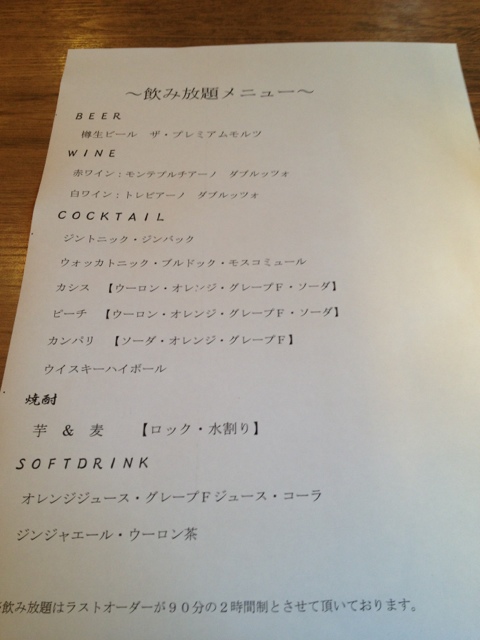 ～飲み放題メニュー～
BEER
樽生ビール　ザ・プレミアムモルツ
WINE
赤ワイン：モンテプルチアーノ　ダブルッツォ
白ワイン：トレビアーノ　ダブルッツォ
COCKTAIL
ジントニック・ジンバック
ウォッカトニック・ブルドック・モスコミュール
カシス　【ウーロン・オレンジ・グレープＦ・ソーダ】
ピーチ　【ウーロン・オレンジ・グレープＦ・ソーダ】
カンパリ　【ソーダ・オレンジ・グレープＦ】
ウイスキーハイボール
焼酎
芋　＆　麦　　【ロック・水割り】
SOFTDRINK
オレンジジュース・グレープＦジュース・コーラ
ジンジャエール・ウーロン茶
※飲み放題はラストオーダーが９０分の２時間制とさせて頂いております。